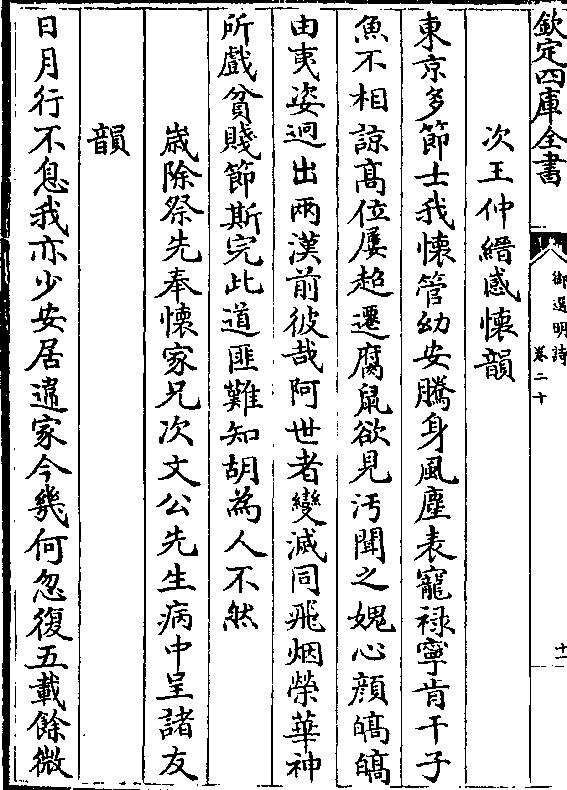 欽定四庫全書
御選明詩
卷二十
十一
次王仲縉感懷韻
東京多節士我懷管幼安騰身風塵表寵禄寧肯干子
魚不相諒髙位屢超遷腐鼠欲見汚聞之媿心顔皜皜
由夷姿逈出兩漢前彼哉阿世者變滅同飛烟榮華神
所戲貧賤節斯完此道匪難知胡為人不然
歳除祭先奉懷家兄次文公先生病中呈諸友
韻
日月行不息我亦少安居違家今幾何忽復五載餘微